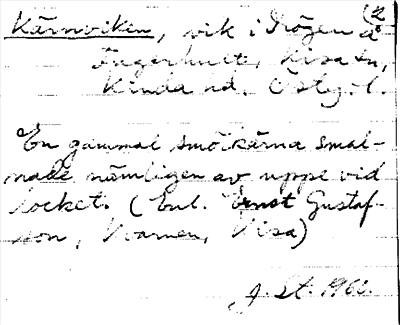 Kärnviken, vik i Frögen å (2
Fågerhult, Kisa sn,
Kinda hd. Östergötl.
En gammal smörkärna smal-
nade nämligen av uppe vid
locket. (Enl. Ernst Gustaf-
son, Narnen, Kisa)
J. St. 1960.